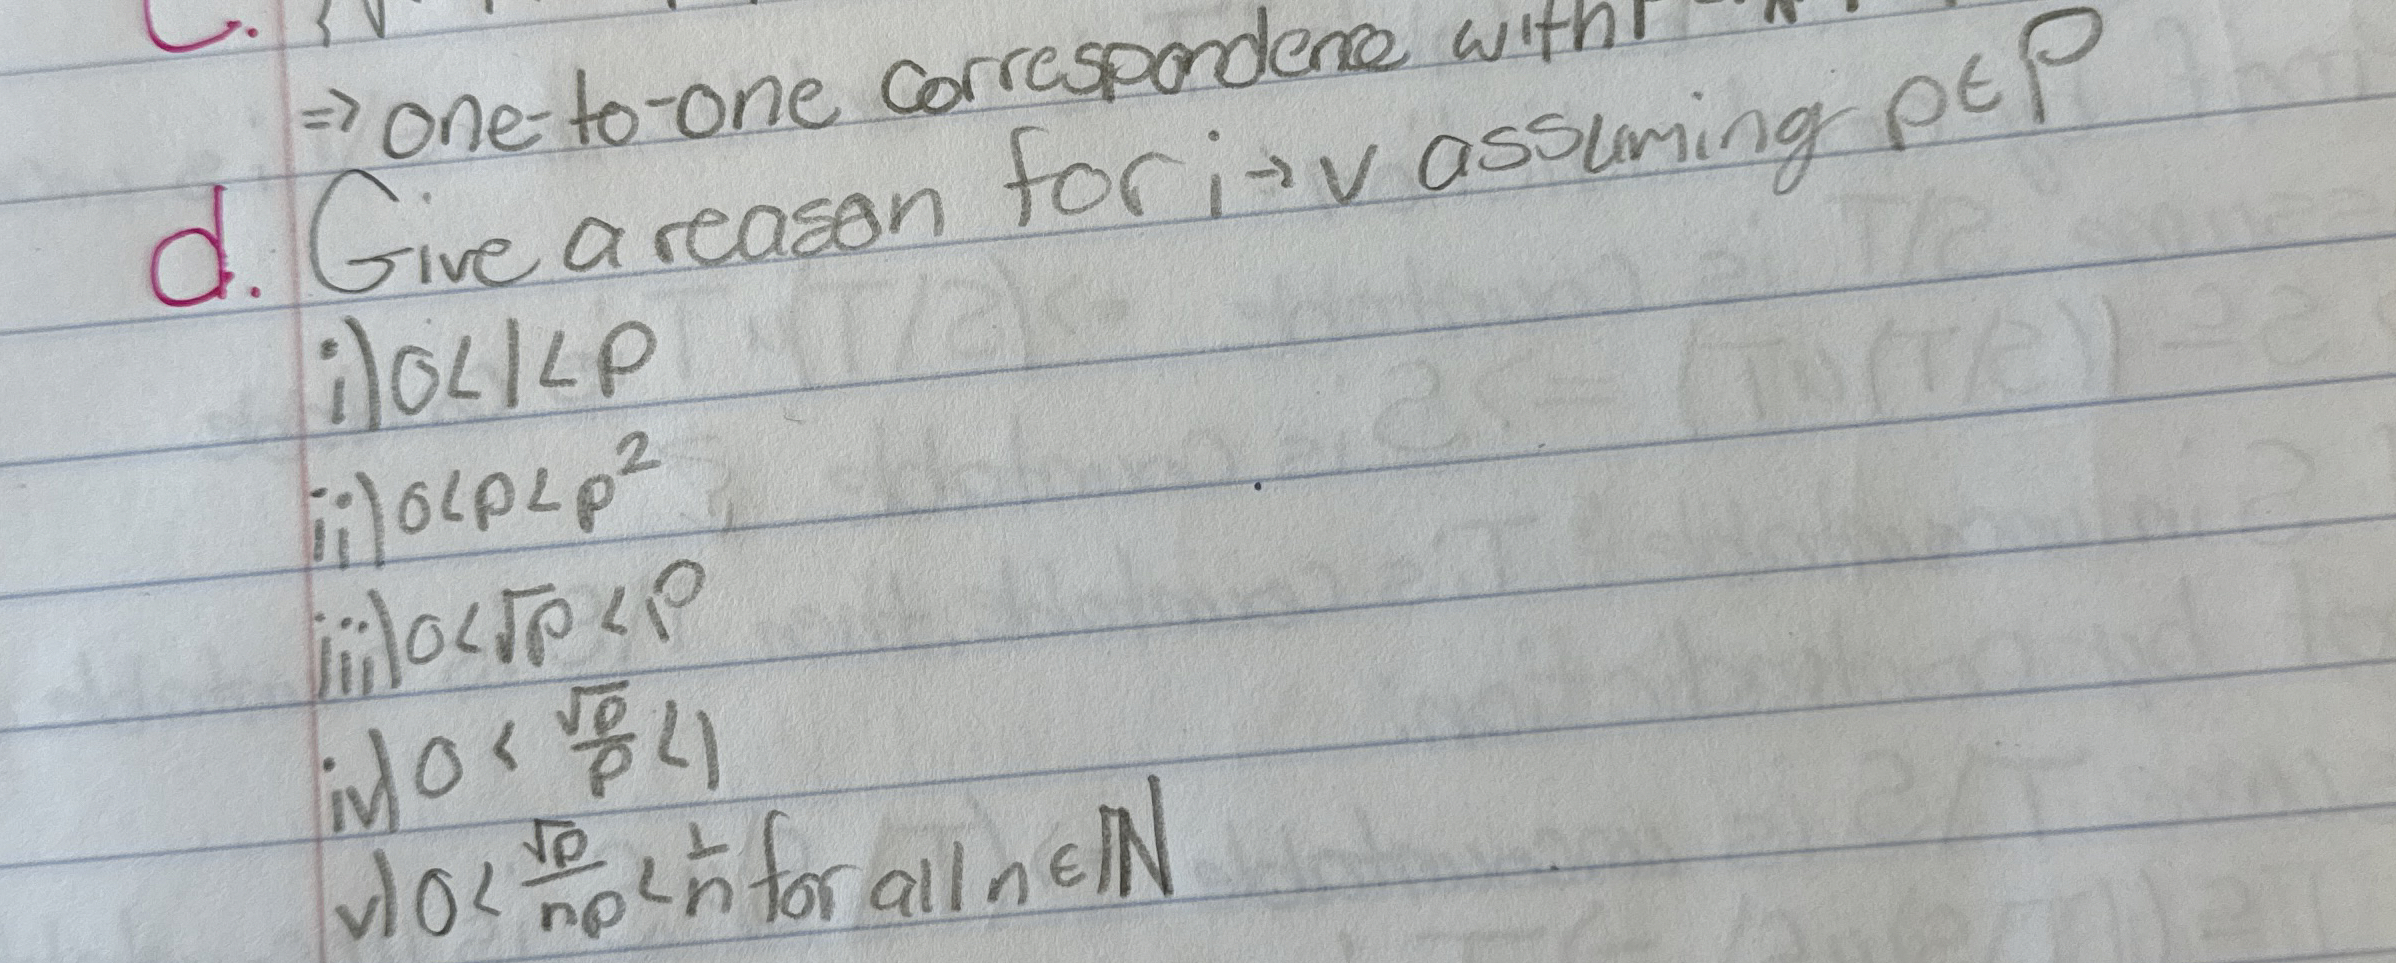 c.
⇒ one-to-one correspondence with
d. Give a reason for i → v assuming p ∈ P
i) 0 < 1 < p
ii) 0 < p < p²
iii) 0 < √p < p
iv) 0 < √p/p < 1
v) 0 < √p/np < 1/n for all n ∈ ℕ